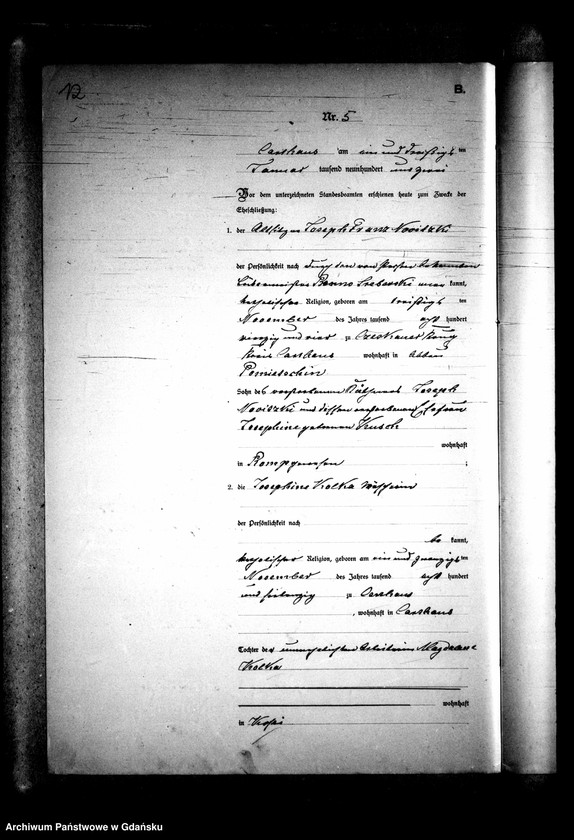 12
B.
Nr. 5
Carthaus am ein und dreißigsten
Januar tausend neunhundert und zwei
Vor dem unterzeichneten Standesbeamten erschienen heute zum Zwecke der
Eheschließung:
1. der Altsitzer Joseph Franz
der Persönlichkeit nach durch den von Person bekannten
kannt,
katholischer Religion, geboren am dreißigsten
November des Jahres tausend acht hundert
vierzig und vier zu
Kreis Carthaus wohnhaft in Abbau
Pomietschin
Sohn des verstorbenen Joseph
und dessen verstorbenen Ehefrau
Josephine geborenen
wohnhaft
in ;
2. die Josephine Kolka
der Persönlichkeit nach
be kannt,
katholischer Religion, geboren am ein und zwanzigsten
November des Jahres tausend acht hundert
und siebenzig zu Carthaus
, wohnhaft in Carthaus
Tochter der unverehelichten Arbeiterin Magdalena
Kolka
wohnhaft
in
Archiwum Państwowe w Gdańsku